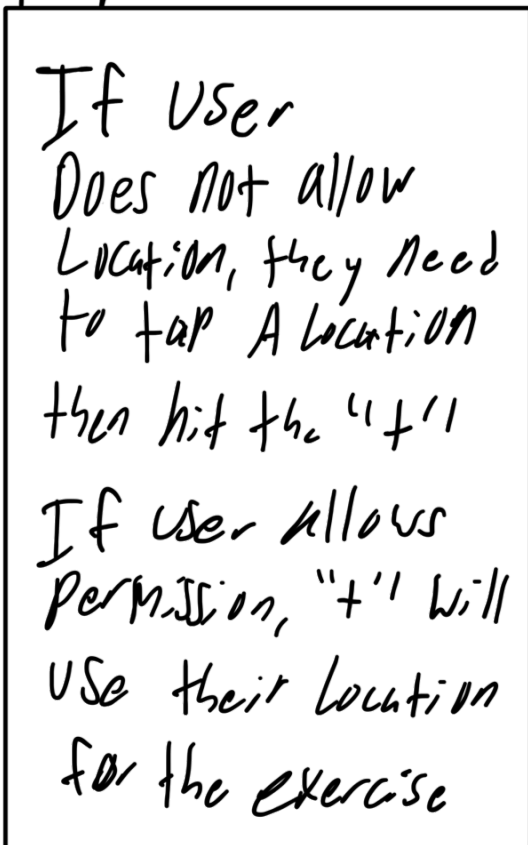 If user
Does not allow
Location, they need
to tap A Location
then hit the "+"
If user Allows
permission, "+" will
use their Location
for the exercise